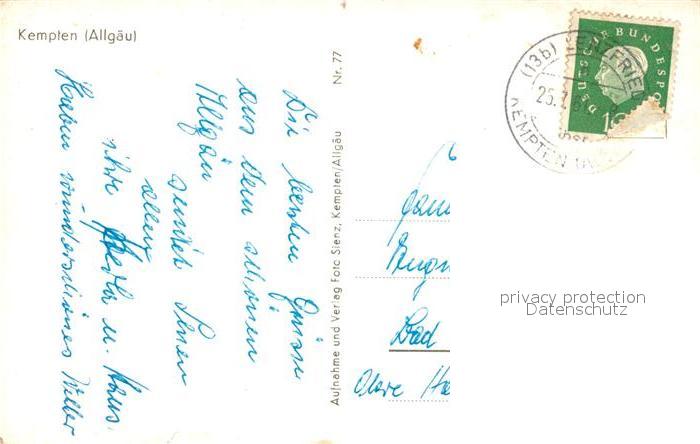 Kempten (Allgäu)
Die besten Grüße
aus dem schönen
Allgäu
sendet Ihnen
allen
ihre Herta u. Hans.
Haben wunderschönes Wetter
Nr. 77
Aufnahme und Verlag Foto Sienz, Kempten/Allgäu
DEUTSCHE BUNDESPOST
(13b)
25.
KEMPTEN
Fam
Bad
privacy protection
Datenschutz